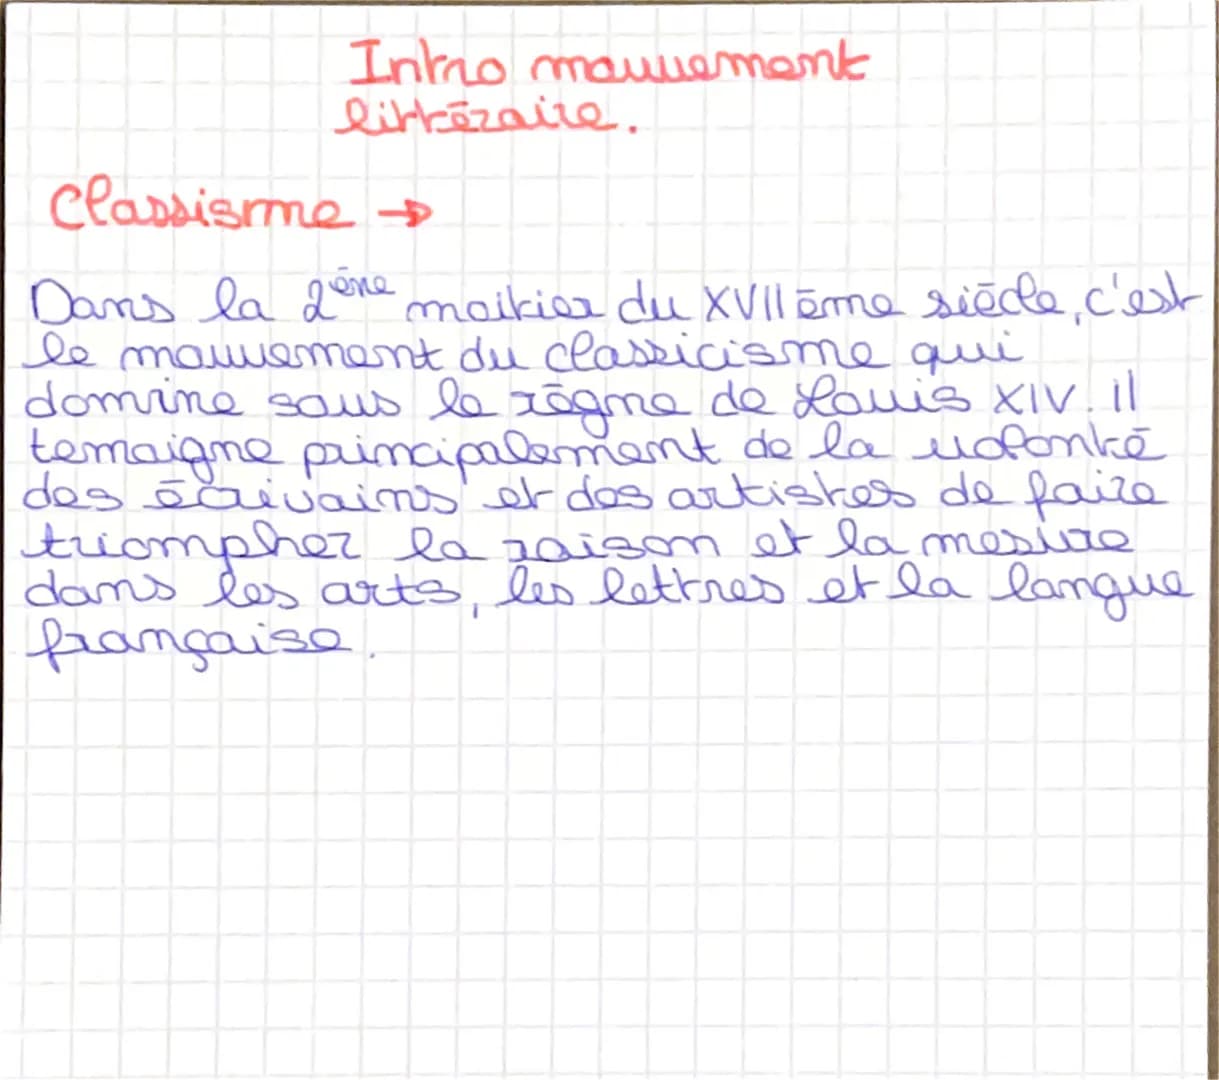 Intro mouvement
littéraire.
Classisme →
Dans la 2ène moitier du XVIIème siècle, c'est
le mouvement du classicisme qui
domine sous le règne de Louis XIV. Il
temoigne principalement de la volonté
des écrivains et des artistes de faire
triompher la raison et la mesure
dans les arts, les lettres et la langue
française.